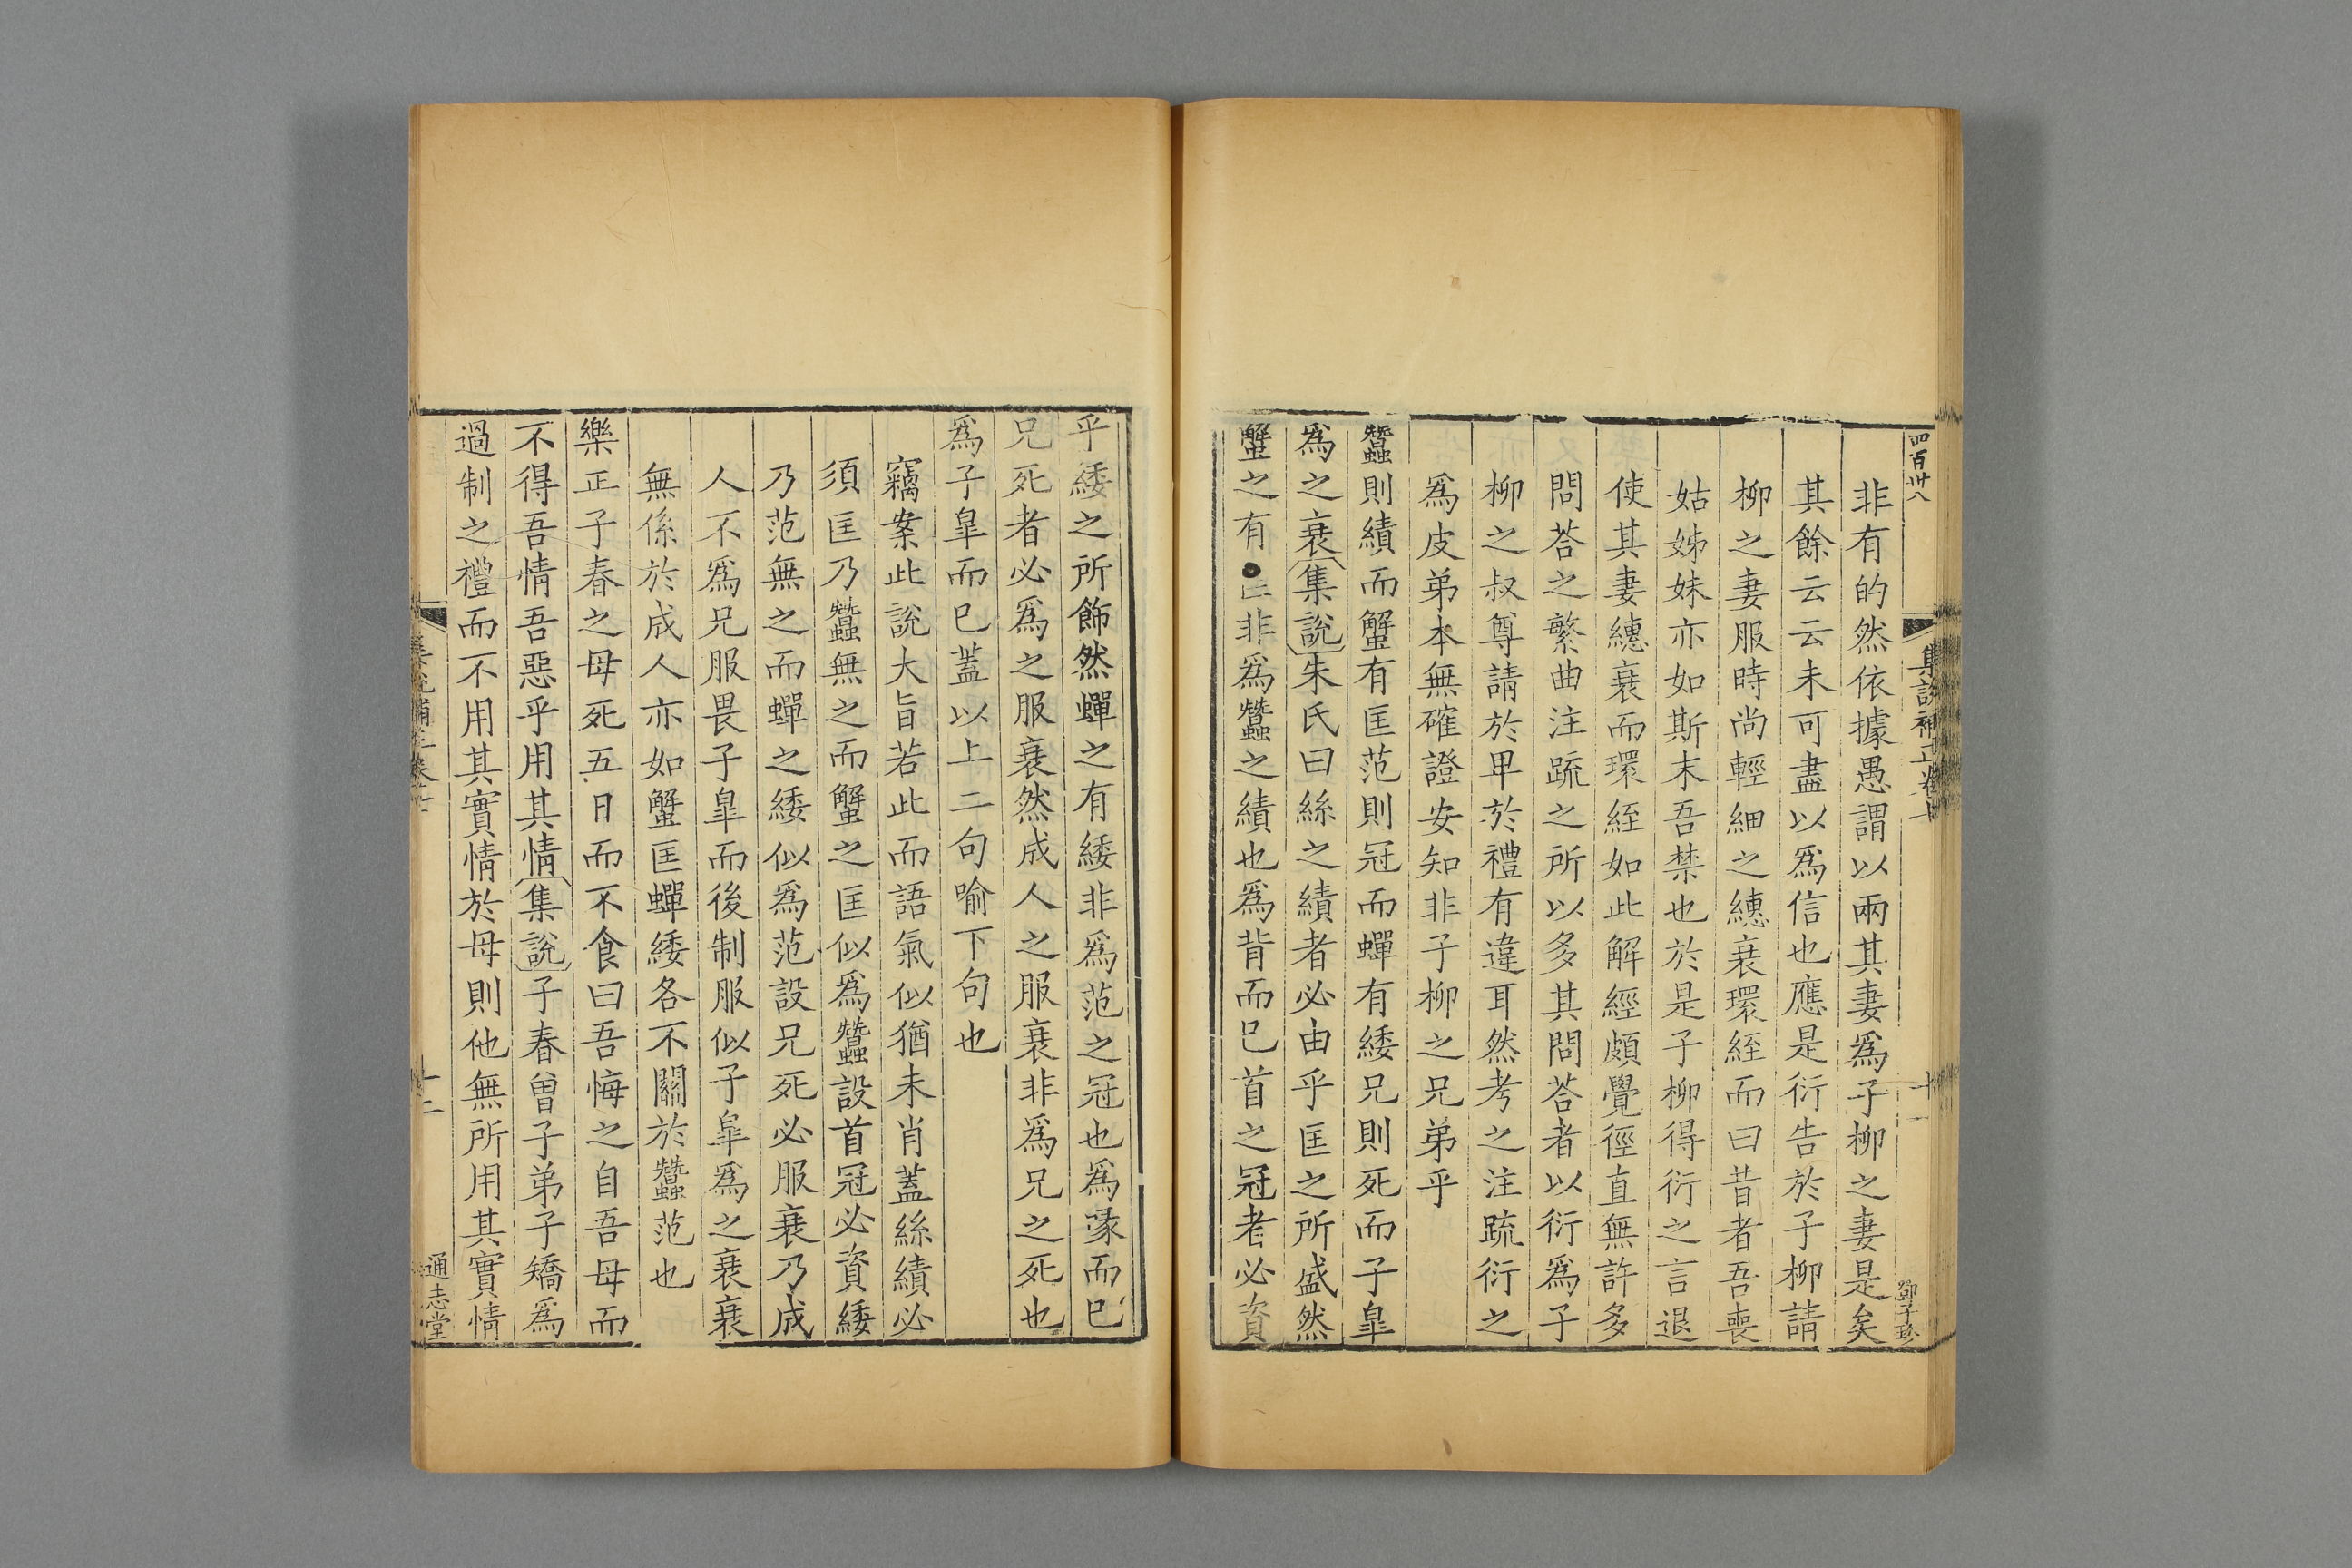 四百卅八
集說補正卷十
十一
非有的然依據愚謂以兩其妻爲子柳之妻是矣
其餘云云未可盡以爲信也應是衍告於子柳請
柳之妻服時尚輕細之繐衰環絰而曰昔者吾喪
姑姊妹亦如斯末吾禁也於是子柳得衍之言退
使其妻繐衰而環絰如此解經頗覺徑直無許多
問荅之繁曲注疏之所以多其問荅者以衍爲子
柳之叔尊請於卑於禮有違耳然考之注疏衍之
爲皮弟本無確證安知非子柳之兄弟乎
蠶則績而蟹有匡范則冠而蟬有緌兄則死而子臯
爲之衰集說朱氏曰絲之績者必由乎匡之所盛然
蟹之有匡非爲蠶之績也爲背而巳首之冠者必資
乎緌之所飾然蟬之有緌非爲范之冠也爲喙而巳
兄死者必爲之服衰然成人之服衰非爲兄之死也
爲子臯而巳蓋以上二句喻下句也
竊案此說大旨若此而語氣似猶未肖蓋絲績必
須匡乃蠶無之而蟹之匡似爲蠶設首冠必資緌
乃范無之而蟬之緌似爲范設兄死必服衰乃成
人不爲兄服畏子臯而後制服似子臯爲之衰衰
無係於成人亦如蟹匡蟬緌各不關於蠶范也
樂正子春之母死五日而不食曰吾悔之自吾母而
不得吾情吾惡乎用其情集說子春曾子弟子矯爲
過制之禮而不用其實情於母則他無所用其實情
十二
通志堂